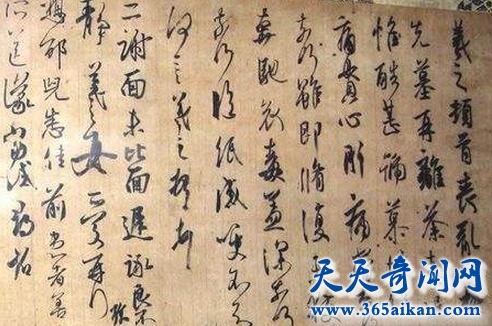 羲之頓首喪亂
先墓再離荼毒
惟酷甚號慕摧
痛貫心肝痛
奈何雖即脩復未
奔馳哀毒益深奈
奈何臨紙感哽不知
何言羲之頓首
二謝面未比面遲詠良不
靜羲之女愛再拜
想邵兒悉佳前患者善
所送議當
天天奇闻网
www.365aikan.com